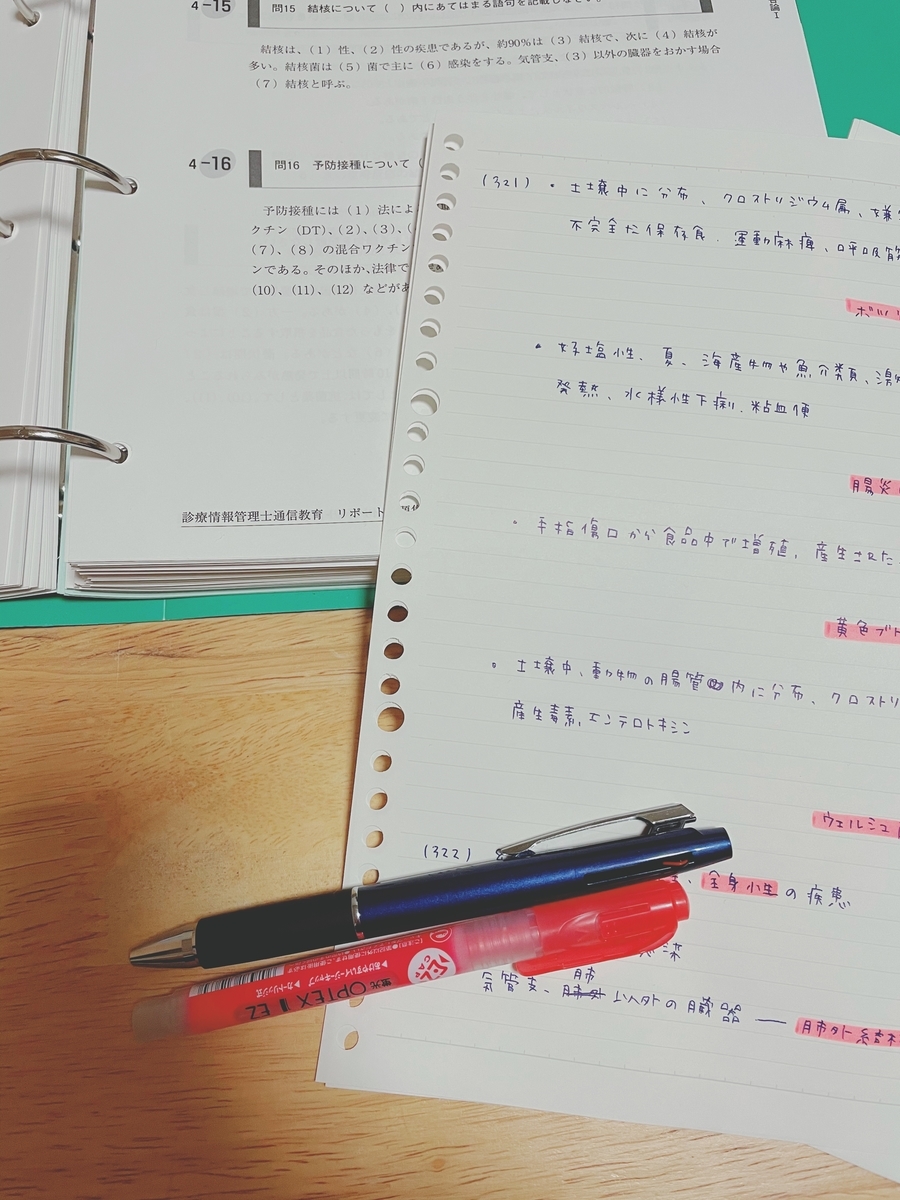 4-15
問15 結核について（ ）内にあてはまる語句を記載しなさい。
結核は、（1）性、（2）性の疾患であるが、約90%は（3）結核で、次に（4）結核が
多い。結核菌は（5）菌で主に（6）感染をする。気管支、（3）以外の臓器をおかす場合
（7）結核と呼ぶ。
4-16
問16 予防接種について（
予防接種には（1）法によ
クチン（DT）、（2）、（3）、（
（7）、（8）の混合ワクチン
ンである。そのほか、法律で
（10）、（11）、（12）などがあ
診療情報管理士通信教育 リポート
論 I
(321) ・土壌中に分布、クロストリジウム属、嫌
不完全な保存食. 運動麻痺、呼吸筋
ボツリ
・好塩性、夏、海産物や魚介類、激
発熱、水様性下痢.粘血便
腸炎
・手指傷口から食品中で増殖, 産生された
黄色ブト
・土壌中、動物の腸管内に分布、クロストリ
産生毒素,エンテロトキシン
ウェルシュ
(322)
、全身性の疾患
染
肺
気管支、以外の臓器 — 肺外結核
CAP
▶あけやすいイージーキャップ ▶カートリッジ式
蛍光 OPTEX EZ